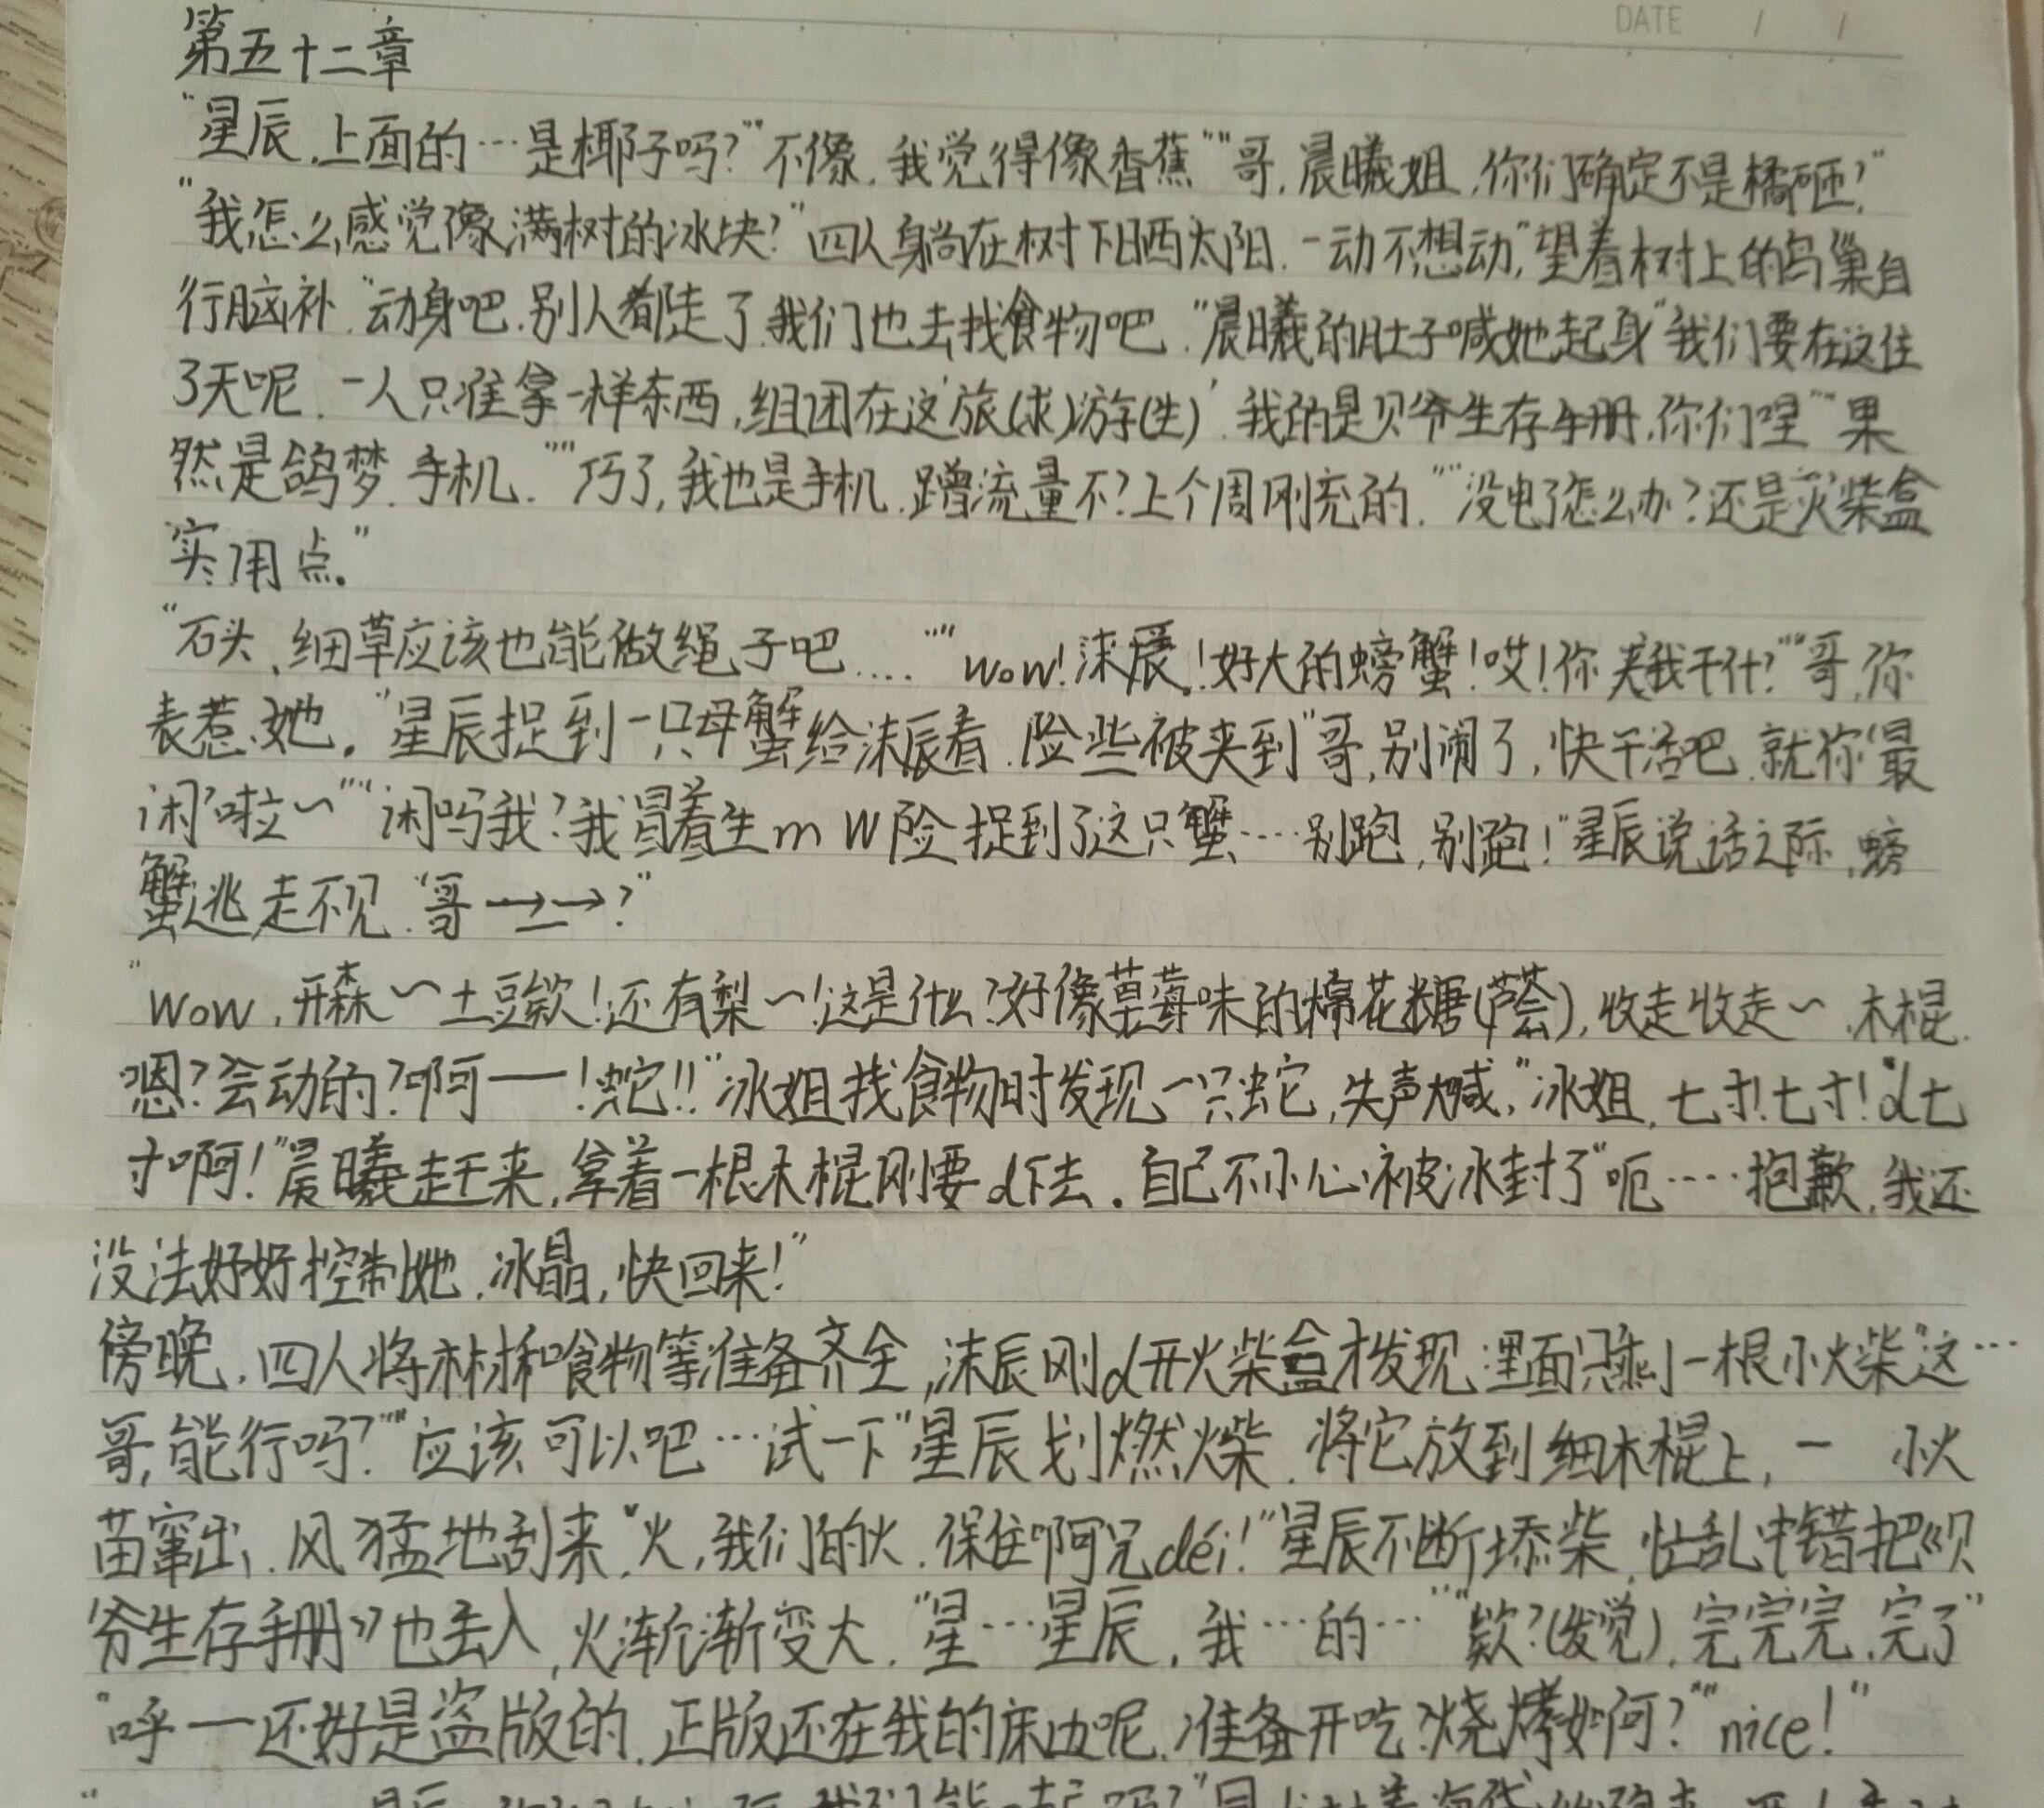 DATE / /
第五十二章
“星辰,上面的…是椰子吗?”“不像,我觉得像香蕉”“哥,晨曦姐,你们确定不是橘砸?”
“我怎么感觉像满树的冰块?”四人躺在树下晒太阳,一动不想动,望着树上的鸟巢自
行脑补.“动身吧.别人都走了我们也去找食物吧.”晨曦的肚子喊她起身“我们要在这住
3天呢.一人只准拿一样东西,组团在这‘旅(求)游(生)’.我的是贝爷生存手册,你们哩”“果
然是鸽梦.手机.”“巧了,我也是手机.蹭流量不?上个周刚充的.”“没电了怎么办?还是火柴盒
实用点.”
“石头、细草应该也能做绳子吧....”“wow!沫辰!好大的螃蟹!哎!你夹我干什?”“哥,你
表惹她.”星辰捉到一只母蟹给沫辰看.险些被夹到“哥,别闹了,快干活吧.就你‘最
闲’啦~”“闲吗我?我冒着生m W险捉到了这只蟹….别跑,别跑!”星辰说话之际,螃
蟹逃走不见.“哥→_→?”
“wow,开森~土豆欸!还有梨~!这是什么?好像草莓味的棉花糖(芦荟),收走收走~.木棍.
嗯?会动的?啊——!蛇!!”冰姐找食物时发现一只蛇,失声大喊,“冰姐,七寸!七寸!d七
寸啊!”晨曦赶来,拿着一根木棍刚要d下去.自己不小心被冰封了“呃….抱歉,我还
没法好好控制她.冰晶,快回来!”
傍晚,四人将木材和食物等准备齐全,沫辰刚d开火柴盒才发现里面只剩一根小火柴“这…
哥,能行吗?”“应该可以吧…试一下”星辰划燃火柴.将它放到细木棍上,一 小火
苗窜出,风猛地刮来“火,我们的火.保住啊兄déi!”星辰不断添柴,忙乱中错把《贝
爷生存手册》也丢入,火渐渐变大.“星…星辰,我…的…”“欸?(发觉),完完完.完了”
“呼——还好是盗版的.正版还在我的床边呢.准备开吃?烧烤如何?”“nice!”